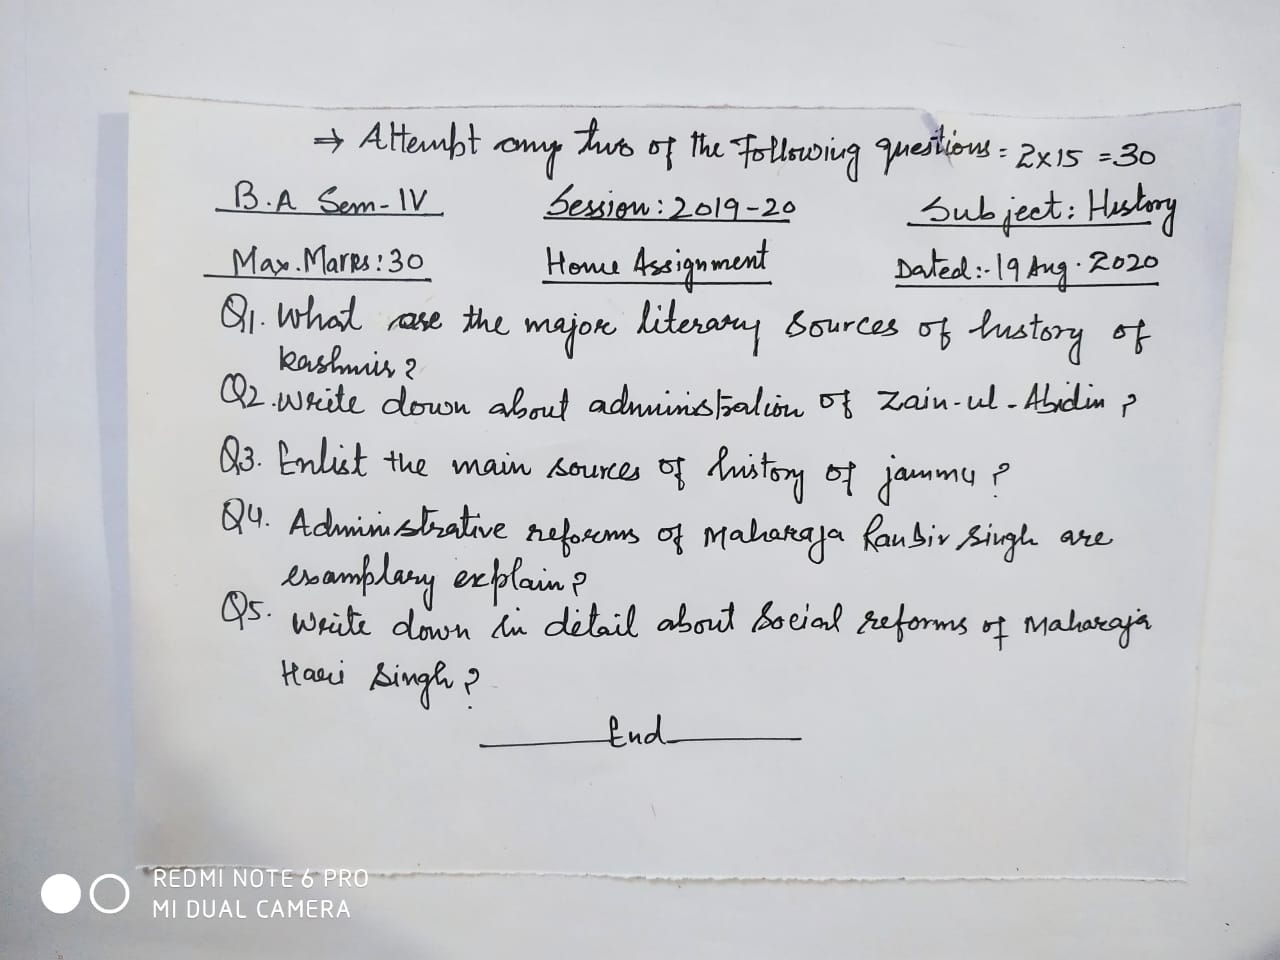 ⇒ Attempt any two of the Following questions = 2x15 = 30
B.A Sem-IV Session: 2019-20 Subject: History
Max. Marks: 30 Home Assignment Dated:- 19 Aug. 2020
Q1. What are the major literary sources of history of
kashmir?
Q2. write down about administration of Zain-ul-Abidin?
Q3. Enlist the main sources of history of jammu?
Q4. Administrative reforms of Maharaja Ranbir Singh are
examplary explain?
Q5. Write down in detail about Social reforms of Maharaja
Hari Singh?
End
REDMI NOTE 6 PRO
MI DUAL CAMERA